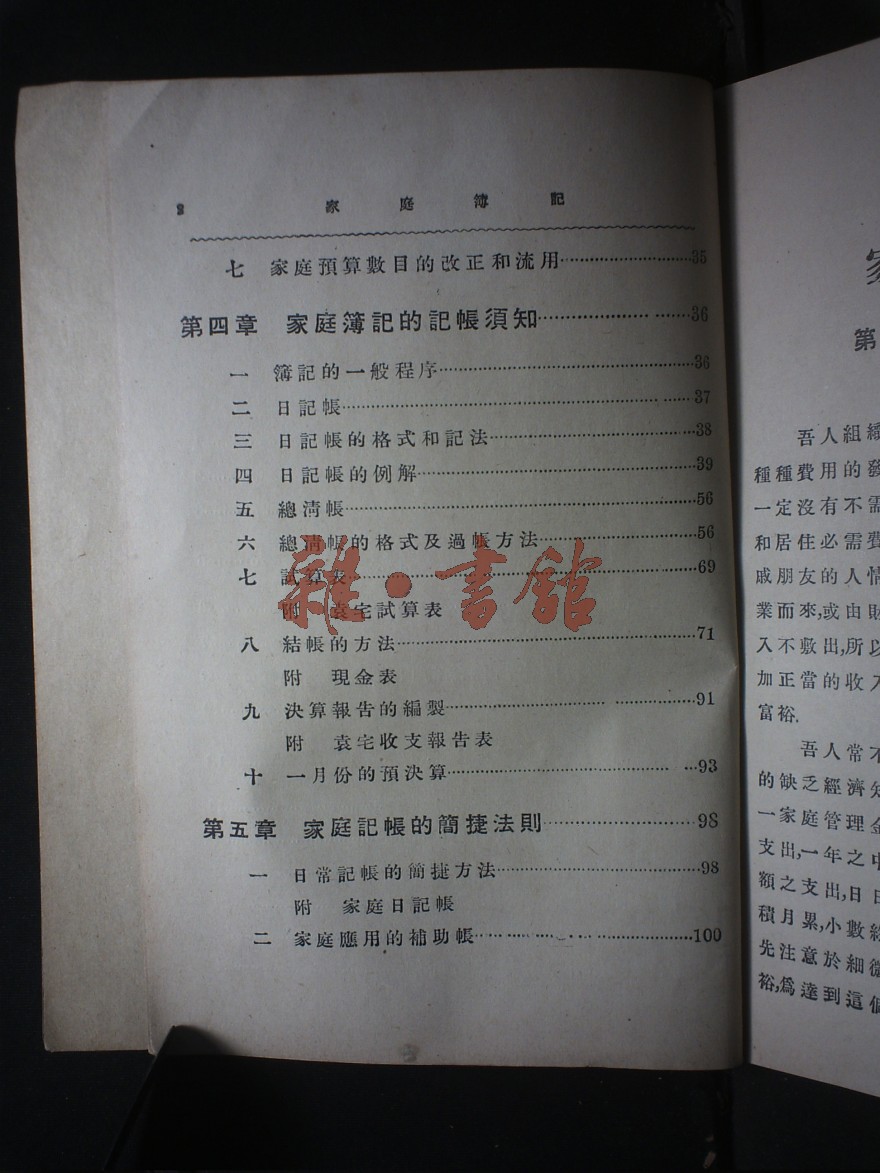 2 家庭簿記
七 家庭預算數目的改正和流用……35
第四章 家庭簿記的記帳須知……36
一 簿記的一般程序……36
二 日記帳……37
三 日記帳的格式和記法……38
四 日記帳的例解……39
五 總淸帳……56
六 總淸帳的格式及過帳方法……56
七 試算表……69
附 袁宅試算表
八 結帳的方法……71
附 現金表
九 決算報告的編製……91
附 袁宅收支報告表
十 一月份的預決算……93
第五章 家庭記帳的簡捷法則……98
一 日常記帳的簡捷方法……98
附 家庭日記帳
二 家庭應用的補助帳……100
雜·書館
第
吾人組織
種種費用的發
一定沒有不需
和居住必需費
戚朋友的人情
業而來,或由財
入不敷出,所以
加正當的收入
富裕.
吾人常不
的缺乏經濟知
一家庭管理金
支出,一年之中
額之支出,日日
積月累,小數
先注意於細微
裕,爲達到這個